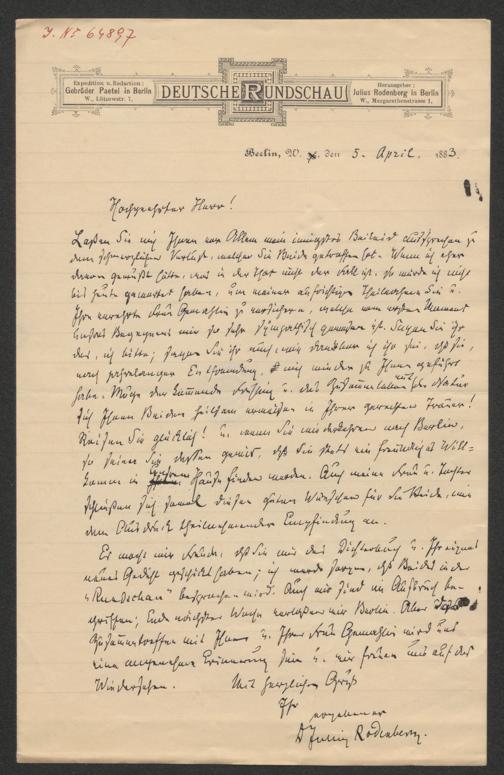 J. No 64897
Expedition u. Redaction:
Gebrüder Paetel in Berlin
W., Lützowstr. 7.
DEUTSCHE RUNDSCHAU
Herausgeber:
Julius Rodenberg in Berlin
W., Margarethenstrasse 1.
Berlin, W. den 5. April. 1883.
Hochgeehrter Herr!
Laßen Sie mich Ihnen vor Allem mein innigstes Beileid aussprechen zu
dem schmerzlichen Verlust, welcher Sie Beide getroffen hat. Wenn ich eher
davon gewußt hätte, was in der That nicht der Fall ist, so würde ich nicht
bis heute gewartet haben, um meiner aufrichtigen Theilnahme Sie u.
Ihre verehrte Frau Gemahlin zu versichern, welche vom ersten Moment
unseres Begegnens mir so sehr sympathisch gewesen ist. Sagen Sie ihr
das, ich bitte; sagen Sie ihr auch, wie dankbar ich ihr bin, daß sie,
nach jahrelanger Entfremdung, mich wieder zu Ihnen geführt
habe. Möge der kommende Frühling u. das Zusammenleben mit der Natur
sich Ihnen Beiden heilsam erweisen in Ihrer gerechten Trauer!
Reisen Sie glücklich! u. wenn Sie wiederkehren nach Berlin,
so seien Sie dessen gewiß, daß Sie stets ein freundliches Will-
kommen in unserem Hause finden werden. Auch meine Frau u. Tochter
schließen sich diesen guten Wünschen für Sie Beide, wie
dem Ausdruck theilnehmender Empfindung an.
Es macht mir Freude, daß Sie mir das Dichterbuch u. Ihr eignes
neues Gedicht geschickt haben; ich werde sorgen, daß Beides in der
"Rundschau" besprochen wird. Auch wir sind im Aufbruch be-
griffen; Ende nächster Woche verlassen wir Berlin. Aber das
Zusammentreffen mit Ihnen u. Ihrer Frau Gemahlin wird uns
eine angenehme Erinnerung sein u. wir freuen uns auf das
Wiedersehen. Mit herzlichem Gruß
Ihr
ergebener
Dr Julius Rodenberg.